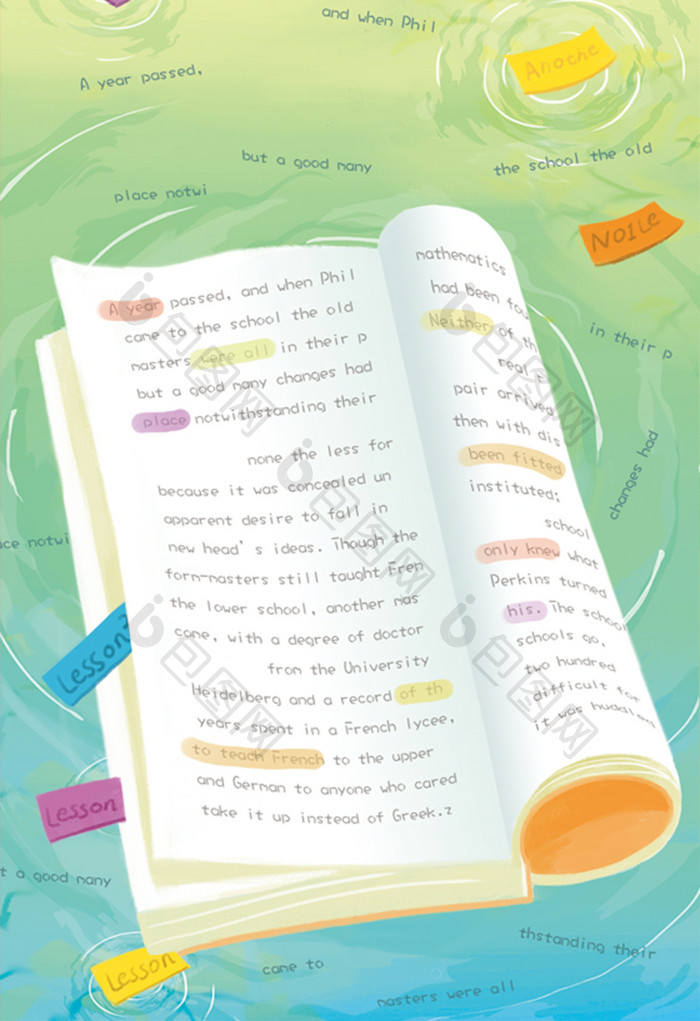 and when Phil
Anoche
A year passed,
but a good nany
the school the old
place notwi
No1le
in their p
changes had
ce notwi
A year passed, and when Phil
cane to the school the old
nasters were all in their p
but a good nany changes had
place notwithstanding their
none the less for
because it was concealed un
apparent desire to fall in
new head's ideas. Though the
forn-nasters still taught Fren
the lower school, another nas
cane, with a degree of doctor
fron the University
Heidelberg and a record of th
years spent in a French lycee,
to teach French to the upper
and Gernan to anyone who cared
take it up instead of Greek.2
nathenatics
had been fou
Neither of th
real
pair arrived
then with dis
been fitted
instituted;
school
only knew what
Perkins turned
his. The school
schools go,
two hundred
difficult for
it was huddled
Lesson2
Lesson
t a good nany
Lesson
thstanding their
cane to
nasters were all
包图网
包图网
包图网
包图网
包图网